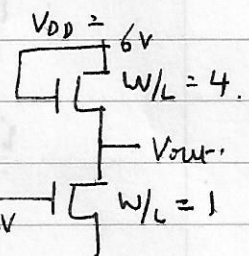 VDD =
6V
W/L = 4.
Vout.
W/L = 1
V